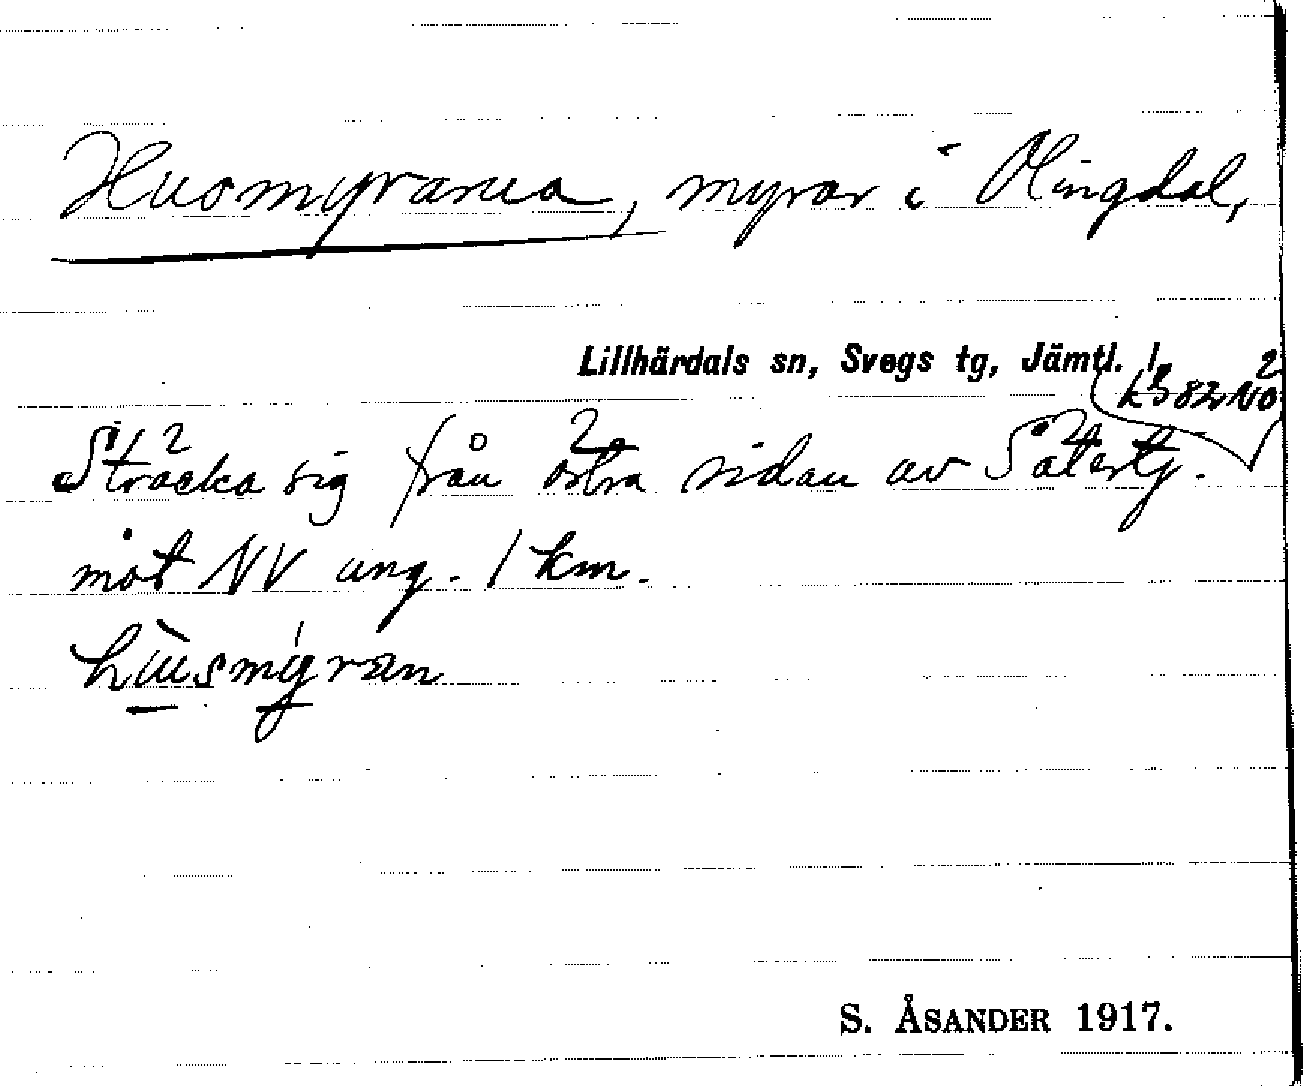 Husmyrarna, myrar i Olingdal,
Lillhärdals sn, Svegs tg, Jämtl. l.
k 382 NO
Sträcka sig från östra sidan av Sätertj.
mot NV ung. 1 km.
husmyran
S. ÅSANDER 1917.